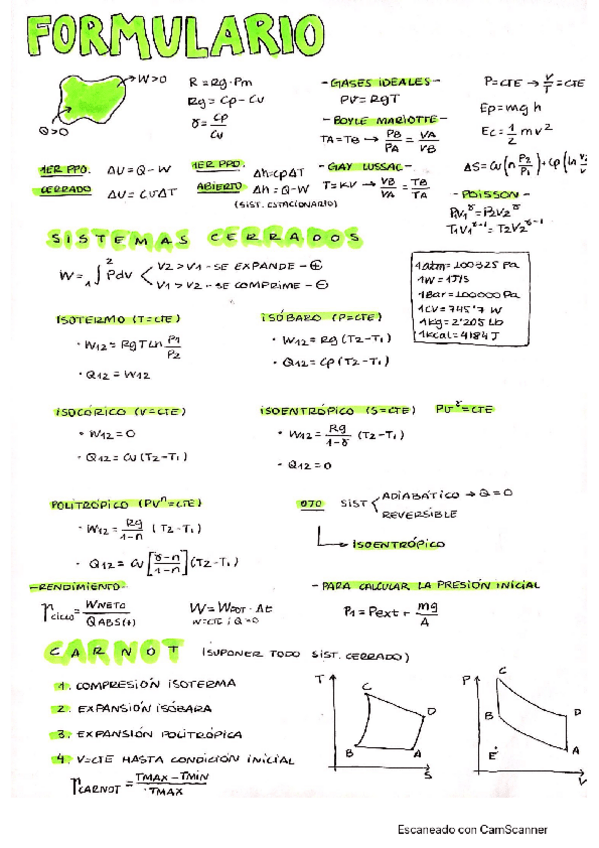 FORMULARIO
W>0
Q>0
R = Rg·Pm
Rg = Cp - Cv
γ = Cp/Cv
- GASES IDEALES -
PV = RgT
- BOYLE MARIOTTE -
TA = TB → PB/PA = VA/VB
- GAY LUSSAC -
T = KV → VB/VA = TB/TA
P = CTE → V/T = CTE
Ep = mgh
Ec = 1/2 mv²
ΔS = Cv(ln P2/P1) + Cp(ln V
- POISSON -
P1V1^γ = P2V2^γ
T1V1^γ-1 = T2V2^γ-1
1ER PPO. CERRADO
ΔU = Q - W
ΔU = CVΔT
1ER PPO. ABIERTO
Δh = CpΔT
Δh = Q - W
(SIST. ESTACIONARIO)
SISTEMAS CERRADOS
W = 1∫2 Pdv
V2 > V1 - SE EXPANDE - ⊕
V1 > V2 - SE COMPRIME - ⊖
1atm = 100325 Pa
1W = 1J/s
1Bar = 100000 Pa
1CV = 745'7 W
1kg = 2'205 Lb
1kcal = 4184 J
ISOTERMO (T=CTE)
· W12 = RgT Ln P1/P2
· Q12 = W12
ISÓBARO (P=CTE)
· W12 = Rg (T2-T1)
· Q12 = Cp (T2-T1)
ISOCÓRICO (V=CTE)
· W12 = 0
· Q12 = Cv (T2-T1)
ISOENTRÓPICO (S=CTE) PV^γ = CTE
· W12 = Rg/1-γ (T2-T1)
· Q12 = 0
POLITRÓPICO (PV^n = CTE)
· W12 = Rg/1-n (T2-T1)
· Q12 = Cv [γ-n/1-n] (T2-T1)
OJO SIST
ADIABÁTICO → Q = 0
REVERSIBLE
ISOENTRÓPICO
- RENDIMIENTO -
η ciclo = WNETO/QABS(+)
W = WPOT · Δt
W=CTE ; Q=0
- PARA CALCULAR LA PRESIÓN INICIAL
P1 = Pext + mg/A
CARNOT (SUPONER TODO SIST. CERRADO)
1. COMPRESIÓN ISOTERMA
2. EXPANSIÓN ISÓBARA
3. EXPANSIÓN POLITRÓPICA
4. V=CTE HASTA CONDICIÓN INICIAL
η CARNOT = TMAX - TMIN/TMAX
T
C
D
B
A
S
P
C
B
D
A
E
V
Escaneado con CamScanner